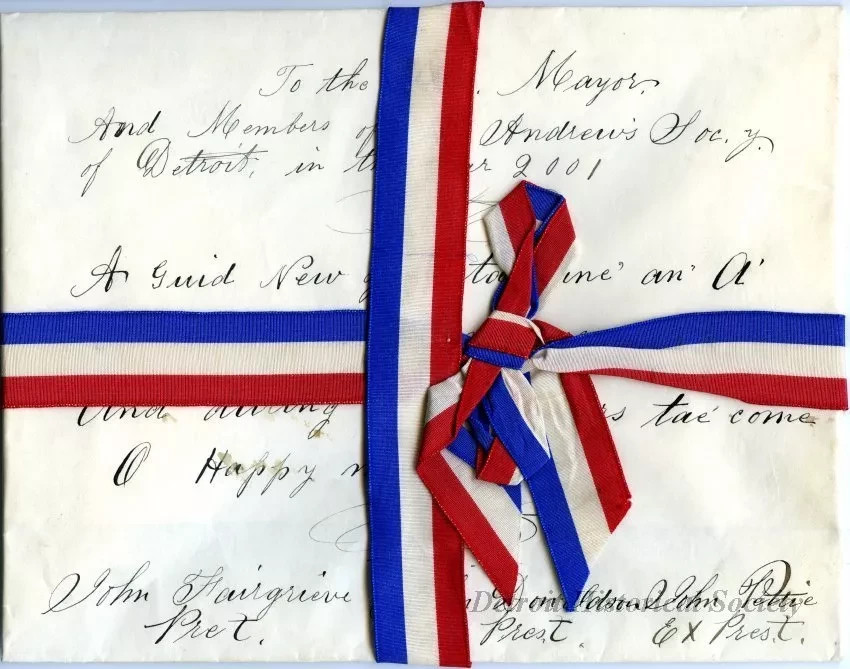 To the Mayor.
And Members Andrew's Soc.y.
of Detroit, in 2001
A Guid New an' A'
And during tae come
O Happy
John Fairgrieve John Pettie
Pret. Prest. Ex Prest.
Detroit Historical Society